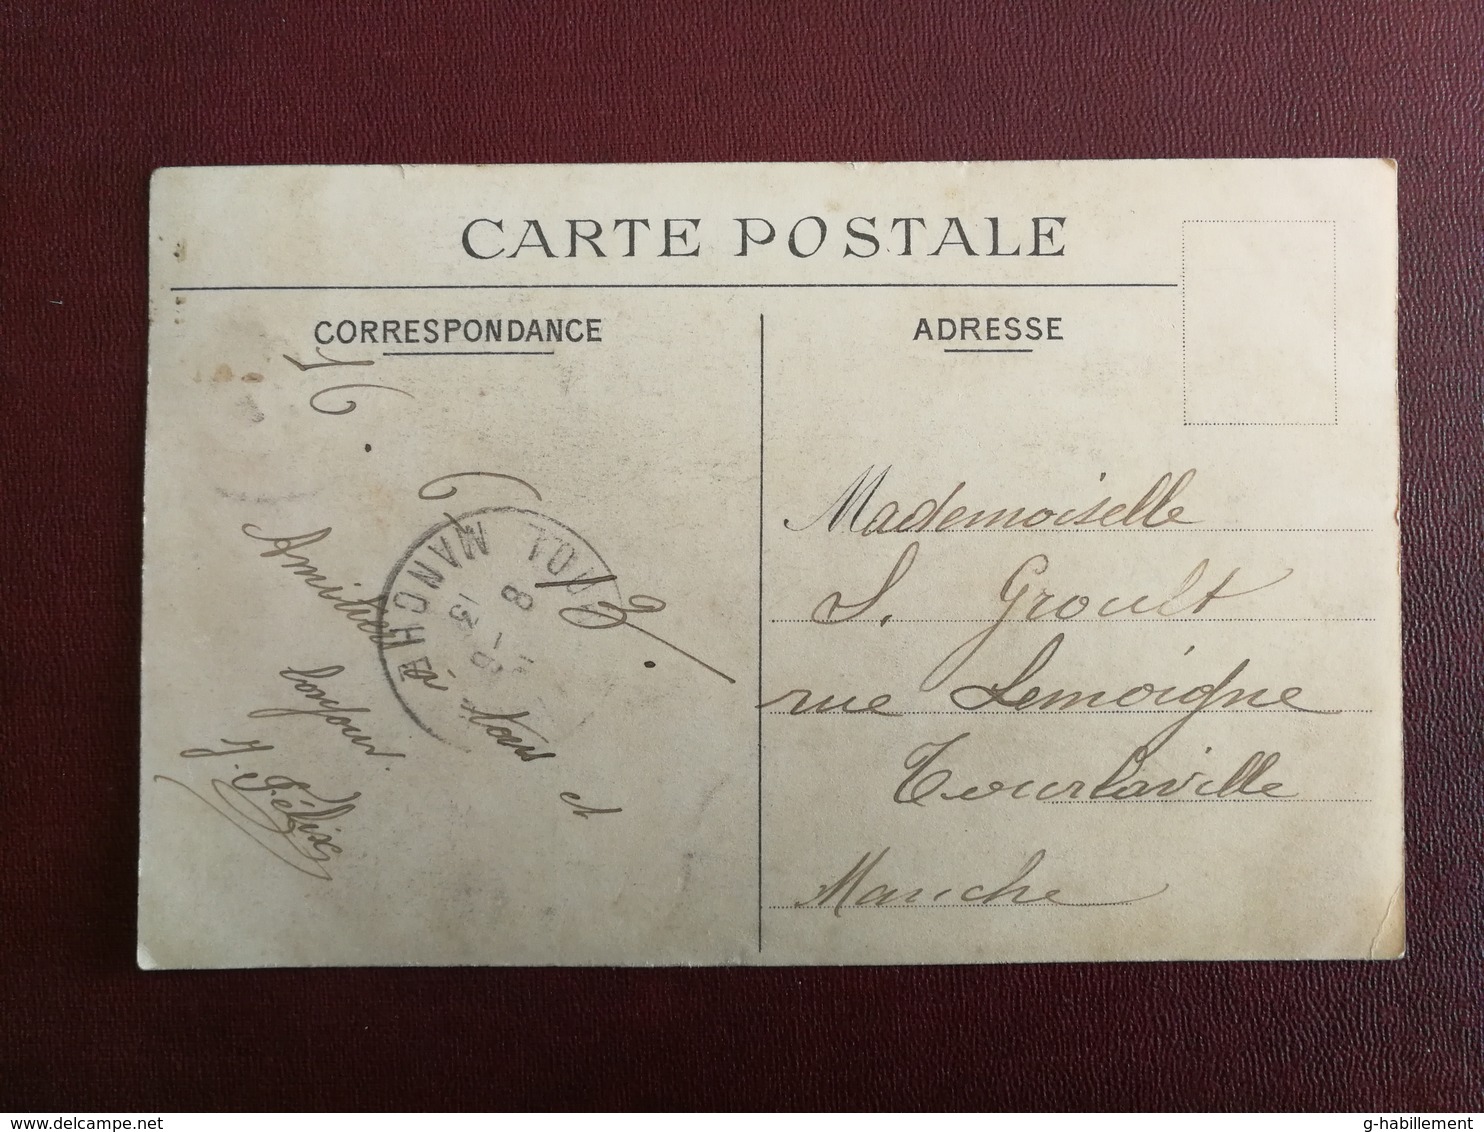 CARTE POSTALE
CORRESPONDANCE
ADRESSE
16.
Amitiés à tous et
bonjour.
J. Félix
MANCHE
8
Mademoiselle
S. Groult
rue Lemoigne
Tourlaville
Manche
g-habillement